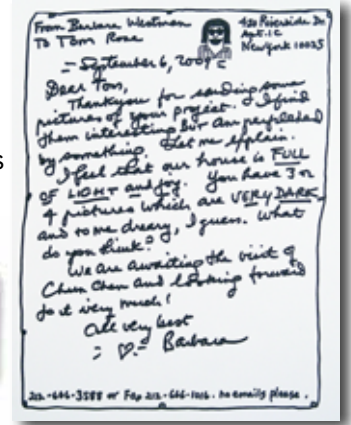 From Barbara Westman
To Tom Rose
420 Riverside Dr
Apt. 1C
New York 10025
= September 6, 2009 =
Dear Tom,
Thankyou for sending some
pictures of your project. I find
them interesting But am perplexed
by something. Let me explain.
I feel that our house is FULL
OF LIGHT and joy. You have 3 or
4 pictures which are VERY DARK,
and to me dreary, I guess. What
do you think?
We are awaiting the visit of
Chun Chen and looking forward
to it very much!
All very best
Barbara
212-666-3588 or Fax 212-666-1016. no emails please.
s